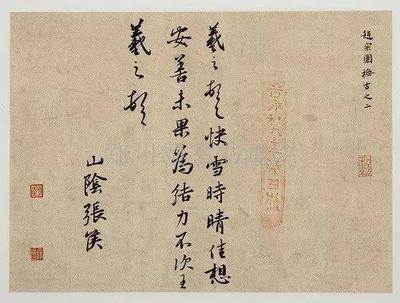 撫古之二
羲之頓首快雪時晴佳想
安善未果為結力不次王
羲之頓首
山陰張侯